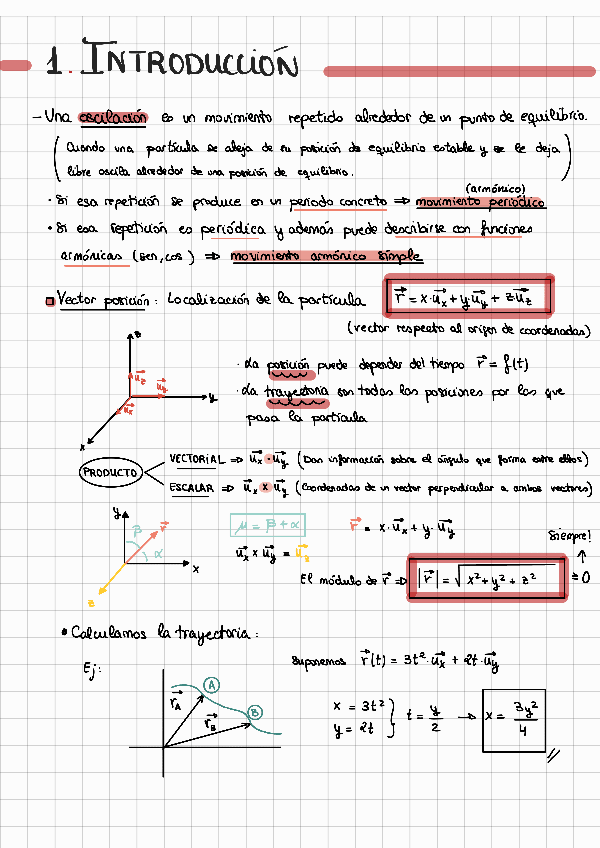 1. INTRODUCCIÓN
- Una oscilación es un movimiento repetido alrededor de un punto de equilibrio.
(Cuando una partícula se aleja de su posición de equilibrio estable y se le deja
libre oscila alrededor de una posición de equilibrio.)
(armónico)
· Si esa repetición se produce en un periodo concreto ⇒ movimiento periódico
· Si esa repetición es periódica y además puede describirse con funciones
armónicas (sen, cos) ⇒ movimiento armónico simple
Vector posición: Localización de la partícula r⃗ = x·u⃗x + y·u⃗y + z·u⃗z
(vector respecto al origen de coordenadas)
z
u⃗z
u⃗y
y
u⃗x
x
· La posición puede depender del tiempo r⃗ = f(t)
· La trayectoria son todas las posiciones por las que
pasa la partícula
PRODUCTO
VECTORIAL ⇒ u⃗x · u⃗y (Dan información sobre el ángulo que forma entre ellos)
ESCALAR ⇒ u⃗x x u⃗y (Coordenadas de un vector perpendicular a ambos vectores)
y
β
r⃗
α
x
z
μ = β + α
r⃗ = x·u⃗x + y·u⃗y
u⃗x x u⃗y = u⃗z
Siempre!
El módulo de r⃗ ⇒ |r⃗| = √x² + y² + z² ≥ 0
• Calculamos la trayectoria:
Ej:
A
r⃗A
B
r⃗B
Suponemos r⃗(t) = 3t²·u⃗x + 2t·u⃗y
x = 3t²
y = 2t
} t = y/2 → x = 3y²/4